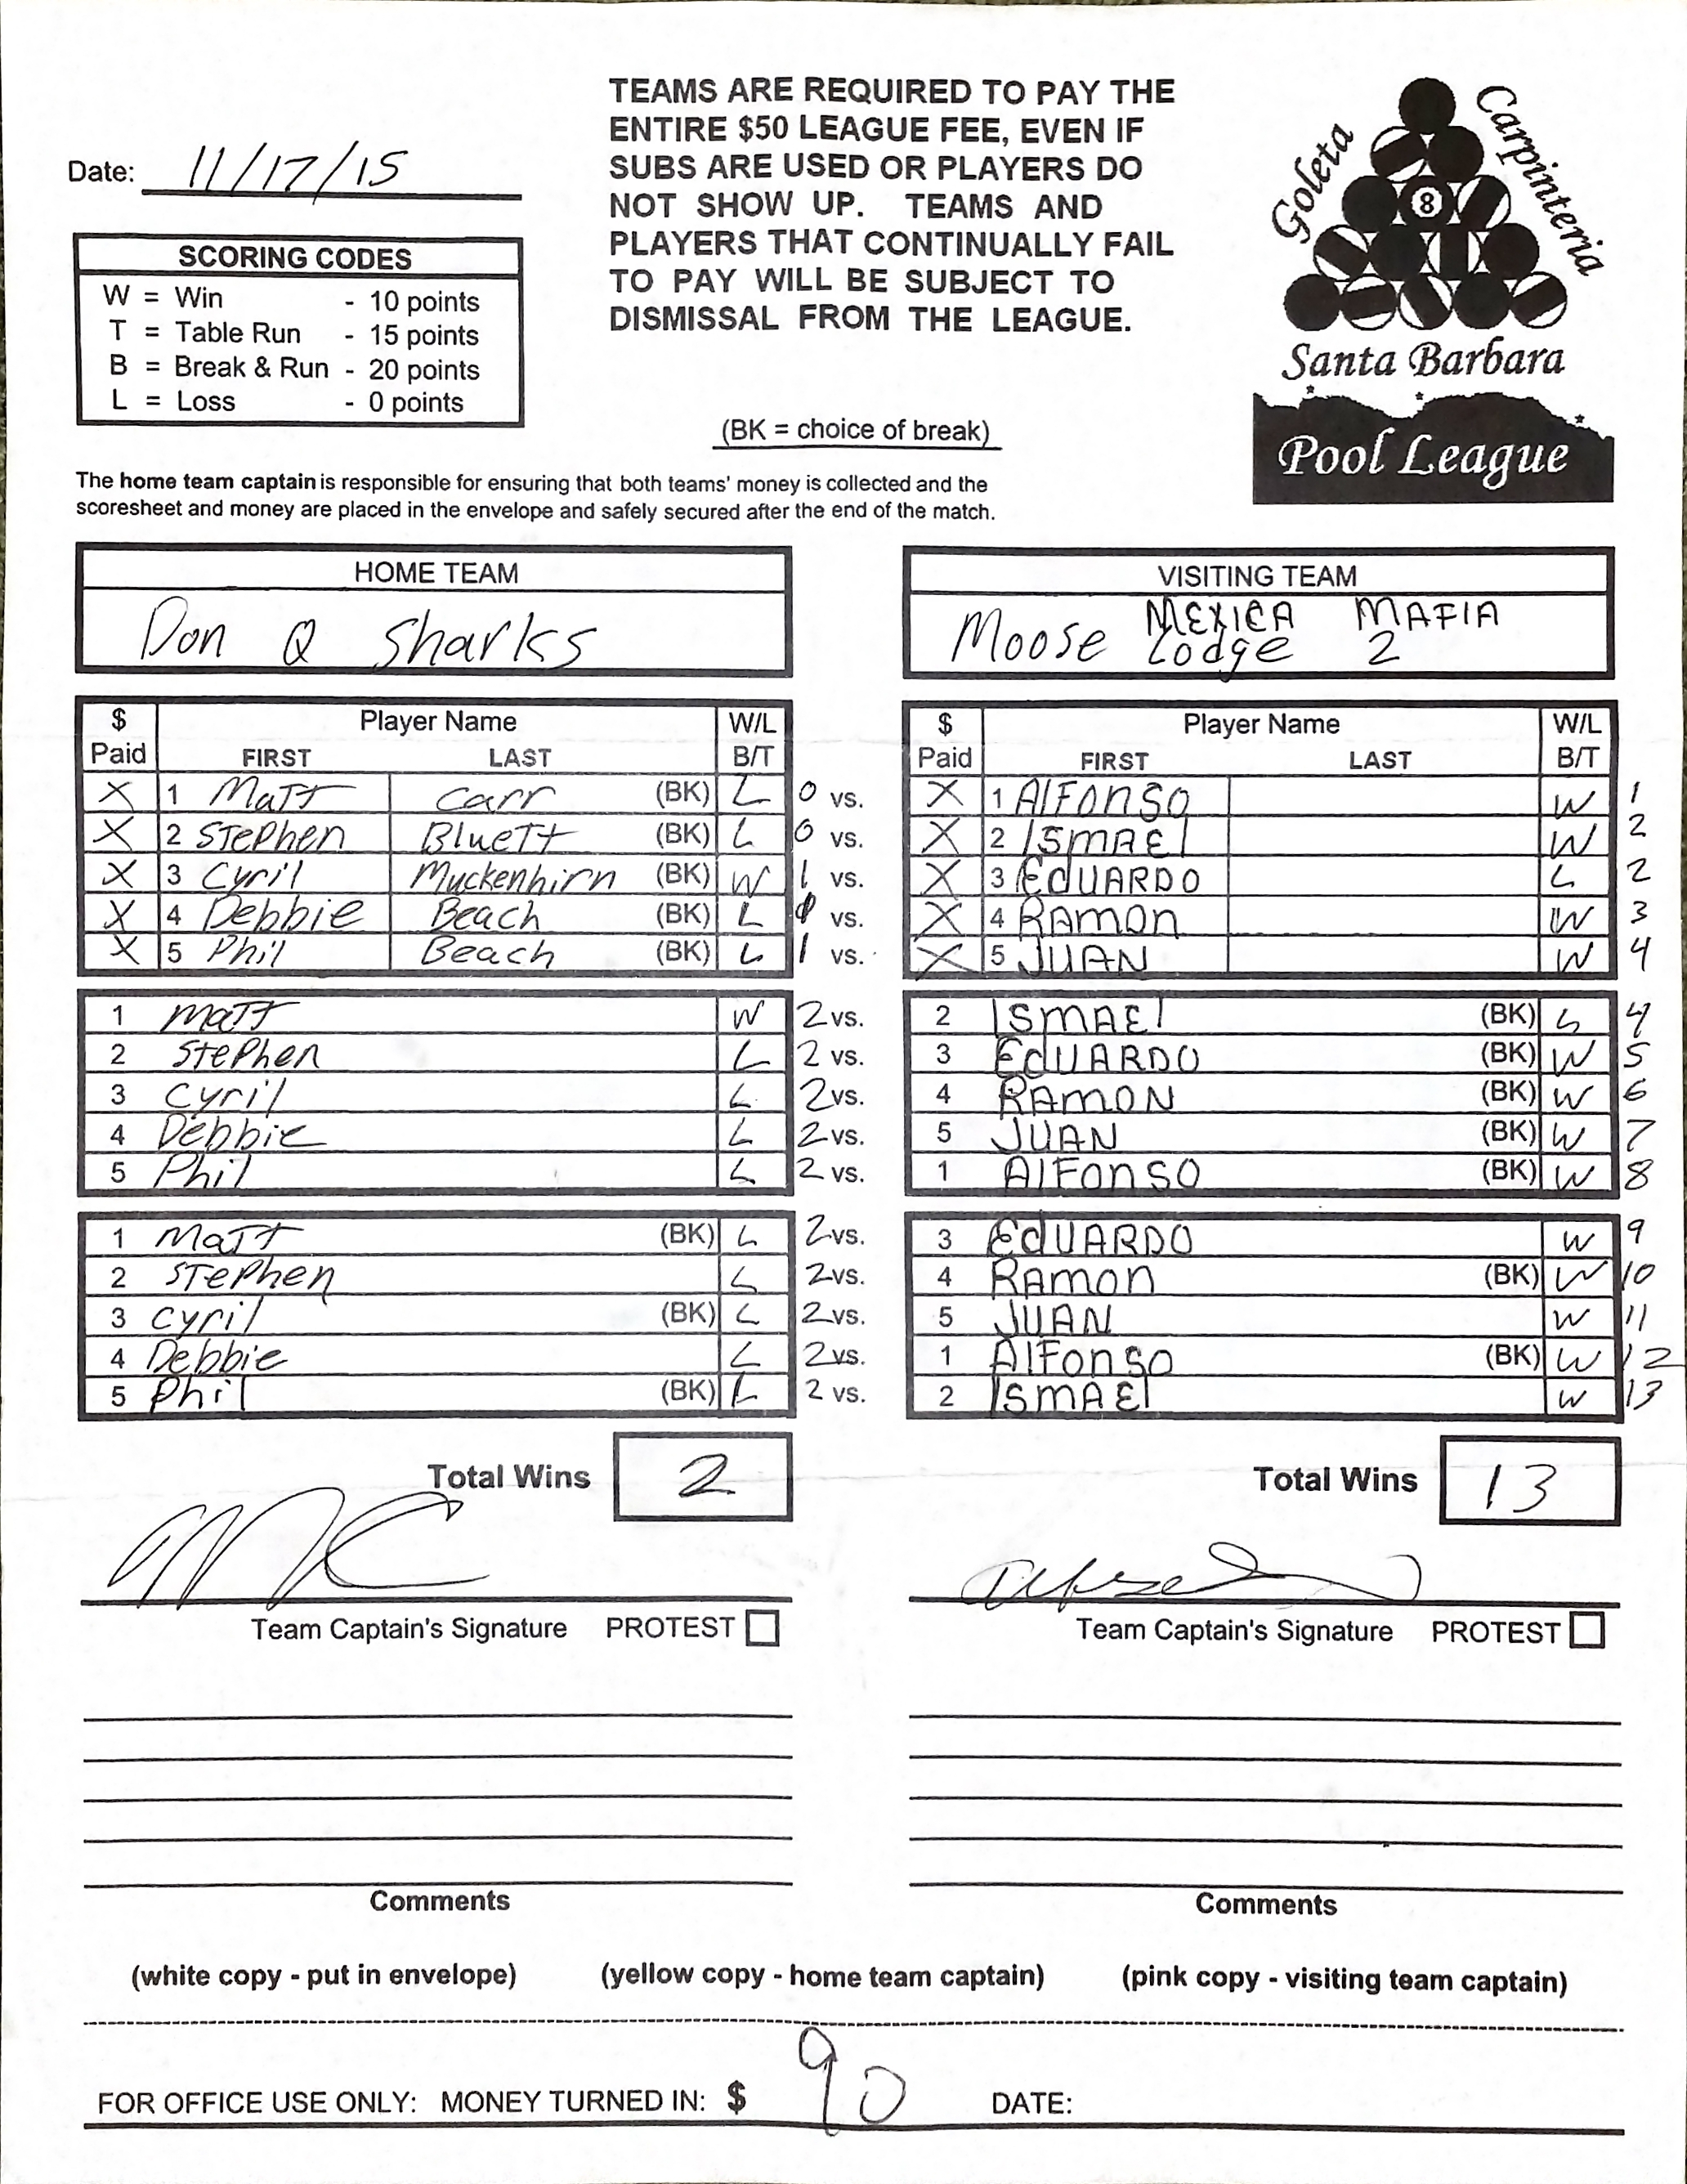 TEAMS ARE REQUIRED TO PAY THE
ENTIRE $50 LEAGUE FEE, EVEN IF
SUBS ARE USED OR PLAYERS DO
NOT SHOW UP. TEAMS AND
PLAYERS THAT CONTINUALLY FAIL
TO PAY WILL BE SUBJECT TO
DISMISSAL FROM THE LEAGUE.
Date: 11/17/15
SCORING CODES
W = Win - 10 points
T = Table Run - 15 points
B = Break & Run - 20 points
L = Loss - 0 points
(BK = choice of break)
Goleta
Carpinteria
8
Santa Barbara
Pool League
The home team captain is responsible for ensuring that both teams' money is collected and the
scoresheet and money are placed in the envelope and safely secured after the end of the match.
HOME TEAM
Don Q Sharks
VISITING TEAM
MEXICA MAFIA
Moose Lodge 2
$ Player Name W/L
Paid FIRST LAST B/T
$ Player Name W/L
Paid FIRST LAST B/T
X 1 Matt Carr (BK) L 0 vs. X 1 AlFonso W 1
X 2 Stephen Bluett (BK) L 0 vs. X 2 ISMAEl W 2
X 3 Cyril Muckenhirn (BK) W 1 vs. X 3 EdUARDO L 2
X 4 Debbie Beach (BK) L 1 vs. X 4 RAMON W 3
X 5 Phil Beach (BK) L 1 vs. X 5 JUAN W 4
1 Matt W 2 vs. 2 ISMAEl (BK) L 4
2 Stephen L 2 vs. 3 EdUARDO (BK) W 5
3 Cyril L 2 vs. 4 RAMON (BK) W 6
4 Debbie L 2 vs. 5 JUAN (BK) W 7
5 Phil L 2 vs. 1 AlFonso (BK) W 8
1 Matt (BK) L 2 vs. 3 EdUARDO W 9
2 Stephen L 2 vs. 4 RAMON (BK) W 10
3 Cyril (BK) L 2 vs. 5 JUAN W 11
4 Debbie L 2 vs. 1 AlFonso (BK) W 12
5 Phil (BK) L 2 vs. 2 ISMAEl W 13
Total Wins 2
Total Wins 13
Team Captain's Signature PROTEST
Team Captain's Signature PROTEST
Comments
Comments
(white copy - put in envelope) (yellow copy - home team captain) (pink copy - visiting team captain)
FOR OFFICE USE ONLY: MONEY TURNED IN: $ 90 DATE: